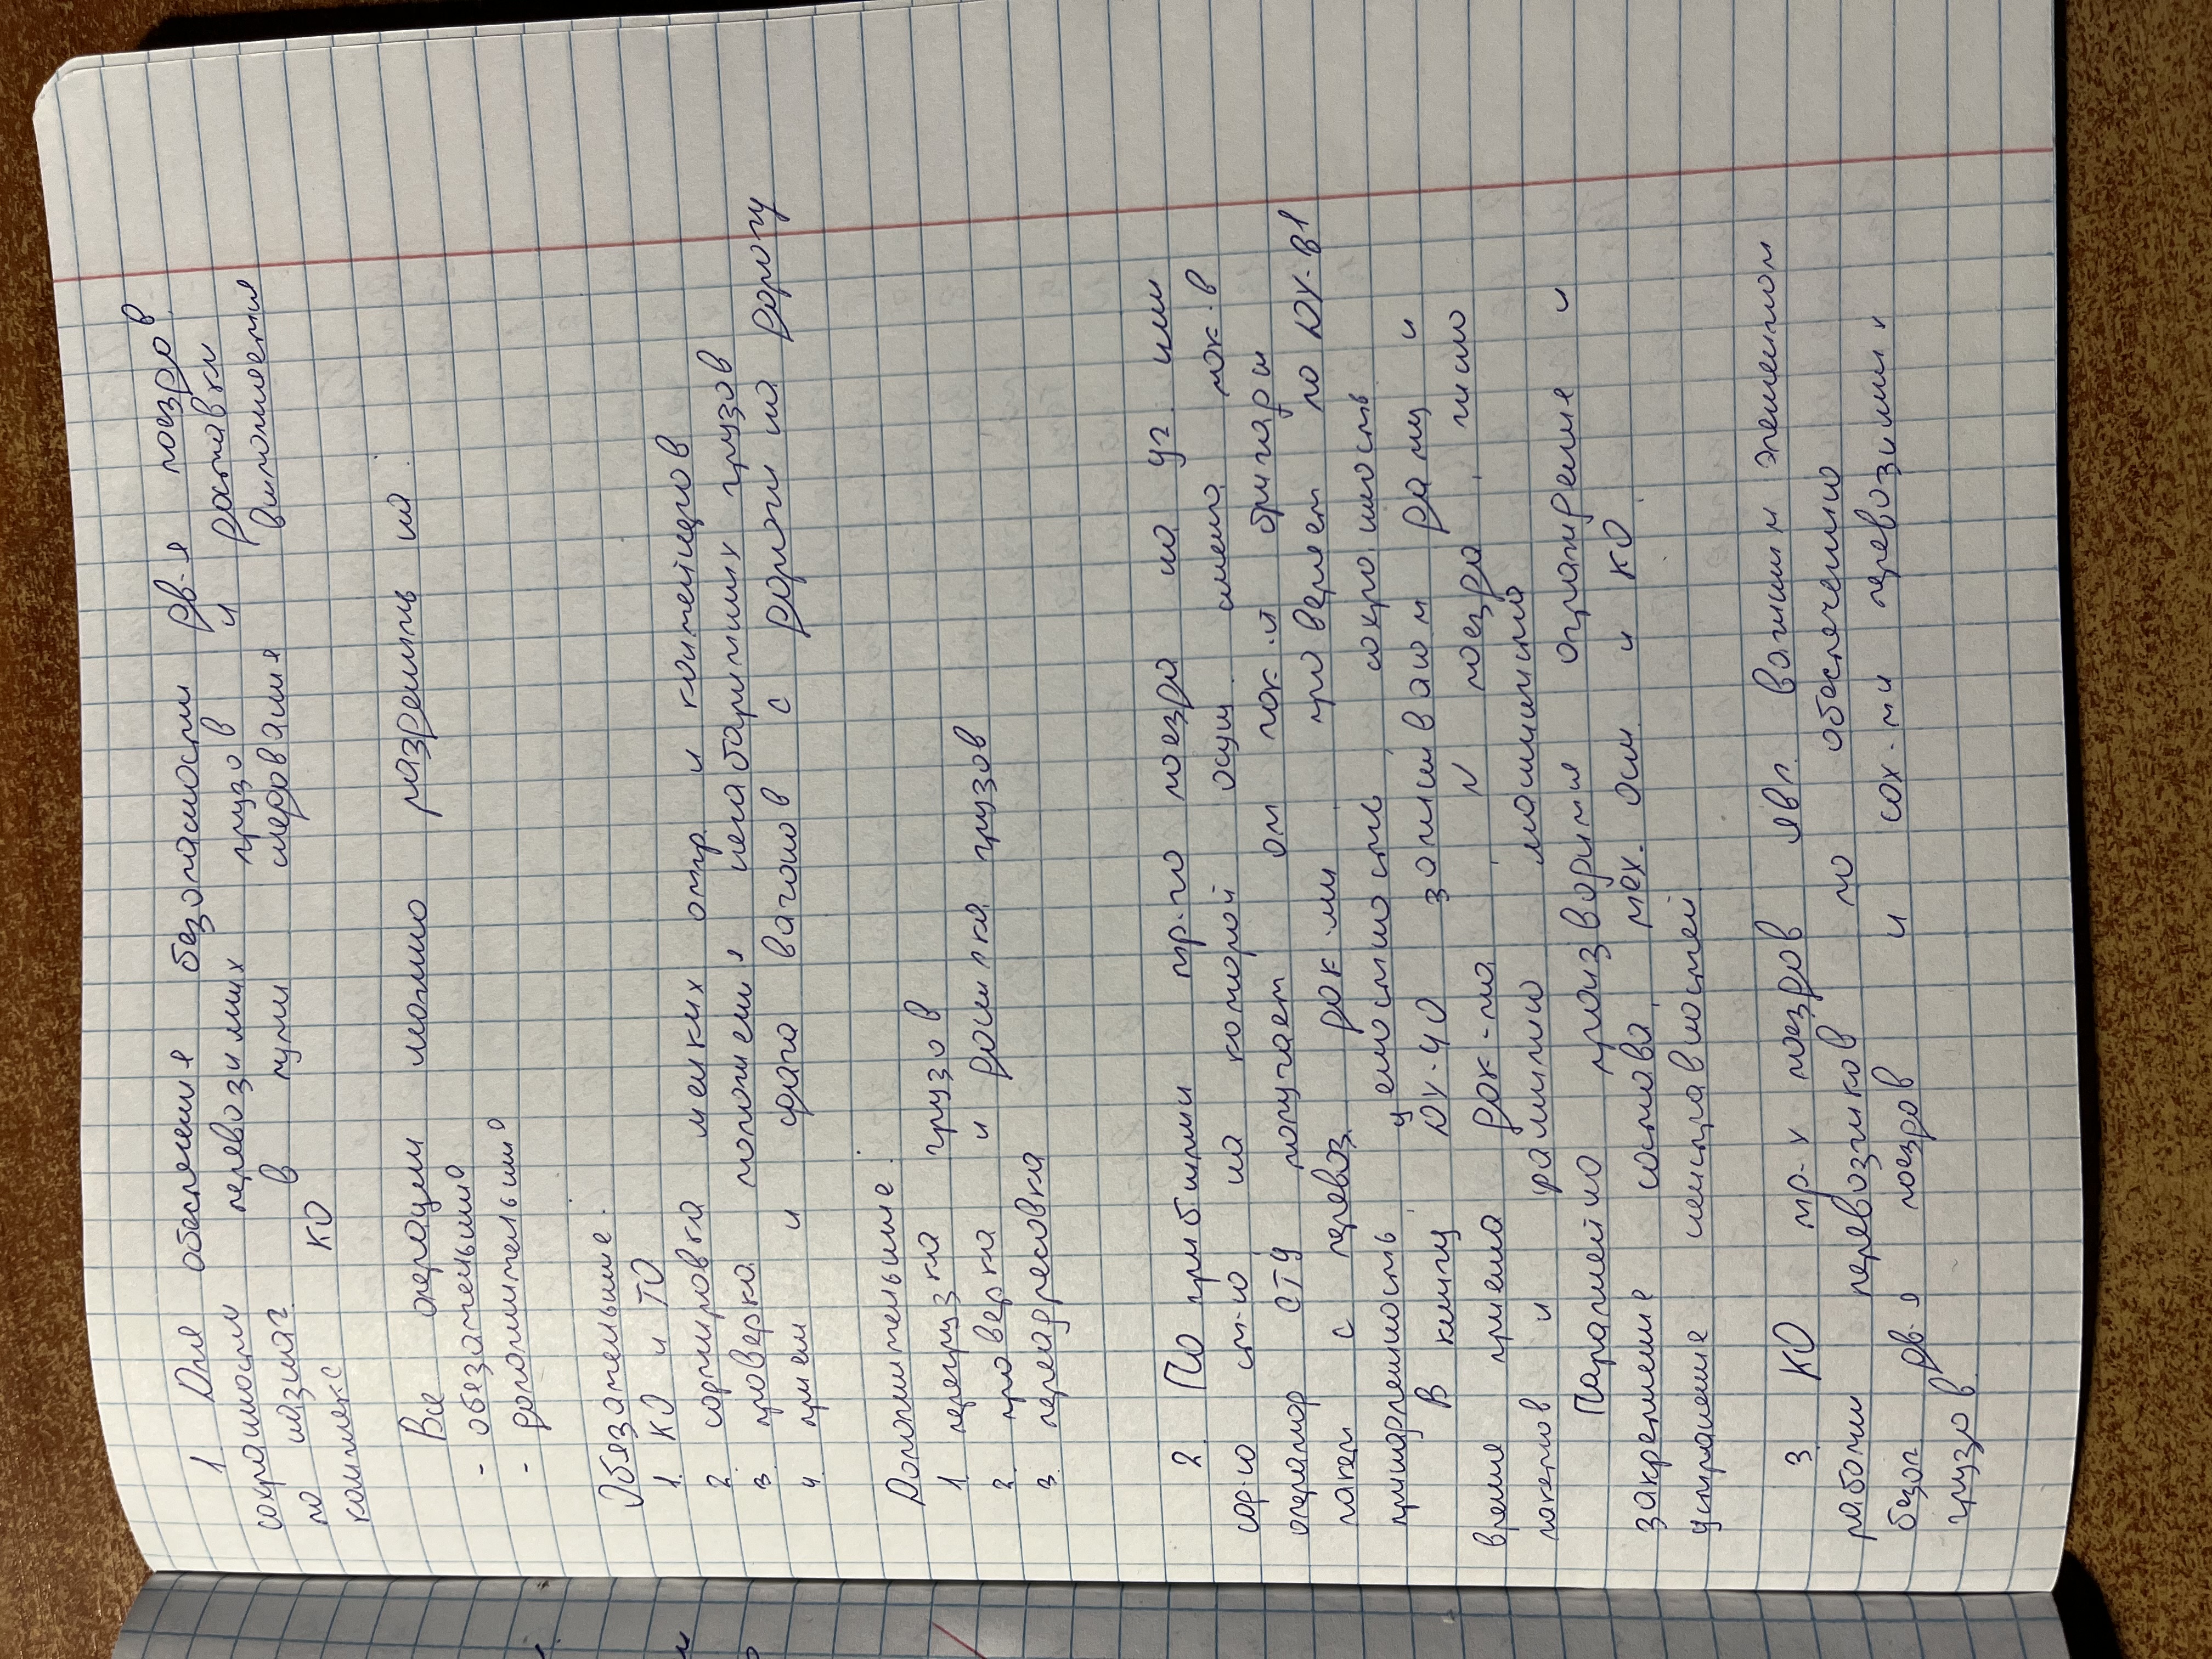 1. Для обеспечения безопасности дв-я поездов
сохранности перевозимых грузов и доставки
по назнач. в пути следования выполняется
комплекс КО
Все операции можно разделить на:
- обязательные
- дополнительные
Обязательные:
1. КО и ТО
2. сортировка мелких отпр. и контейнеров
3. проверка полжен. негабаритных грузов
4. прием и сдача вагонов с дороги на дорогу
Дополнительные:
1. перегрузка грузов
2. проверка и досылка грузов
3. переадресовка
2. По прибытии тр-го поезда на уч. или
сор-ю ст-ю на которой осущ. смена лок-в
оператор СТЦ получает от лок-й бригады
пакет с перевоз. док-ми проверяет по ДУ-В1
принадлежность, целостность, сохранность
В книгу ДУ-40 записывают дату и
время приема док-та, № поезда, число
пакетов и различно машиниста
Параллельно производится ограждение и
закрепление состава, мех. оси и КО
устранение неисправностей
3 КО тр-х поездов явл. важным элементом
работы перевозчиков по обеспечению
безоп дв-я поездов и сох-ти перевозимых
грузов